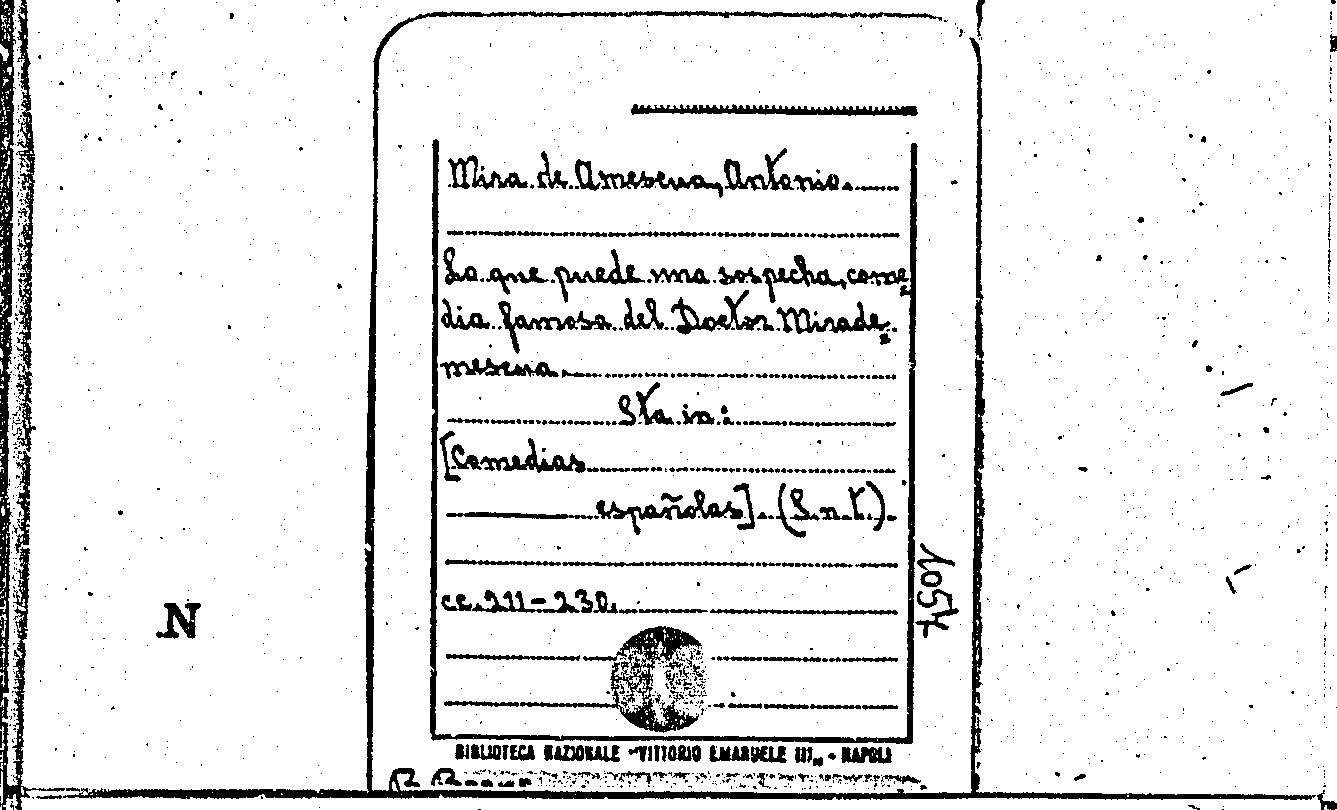 Mira de Amescua, Antonio.
Lo que puede una sospecha, come=
dia famosa del Doctor Mirade=
mescua.
Sta in:
[Comedias
españolas]. (S.n.t.).
cc. 211-230.
1054
.N
BIBLIOTECA NAZIONALE "VITTORIO EMANUELE III„ - NAPOLI